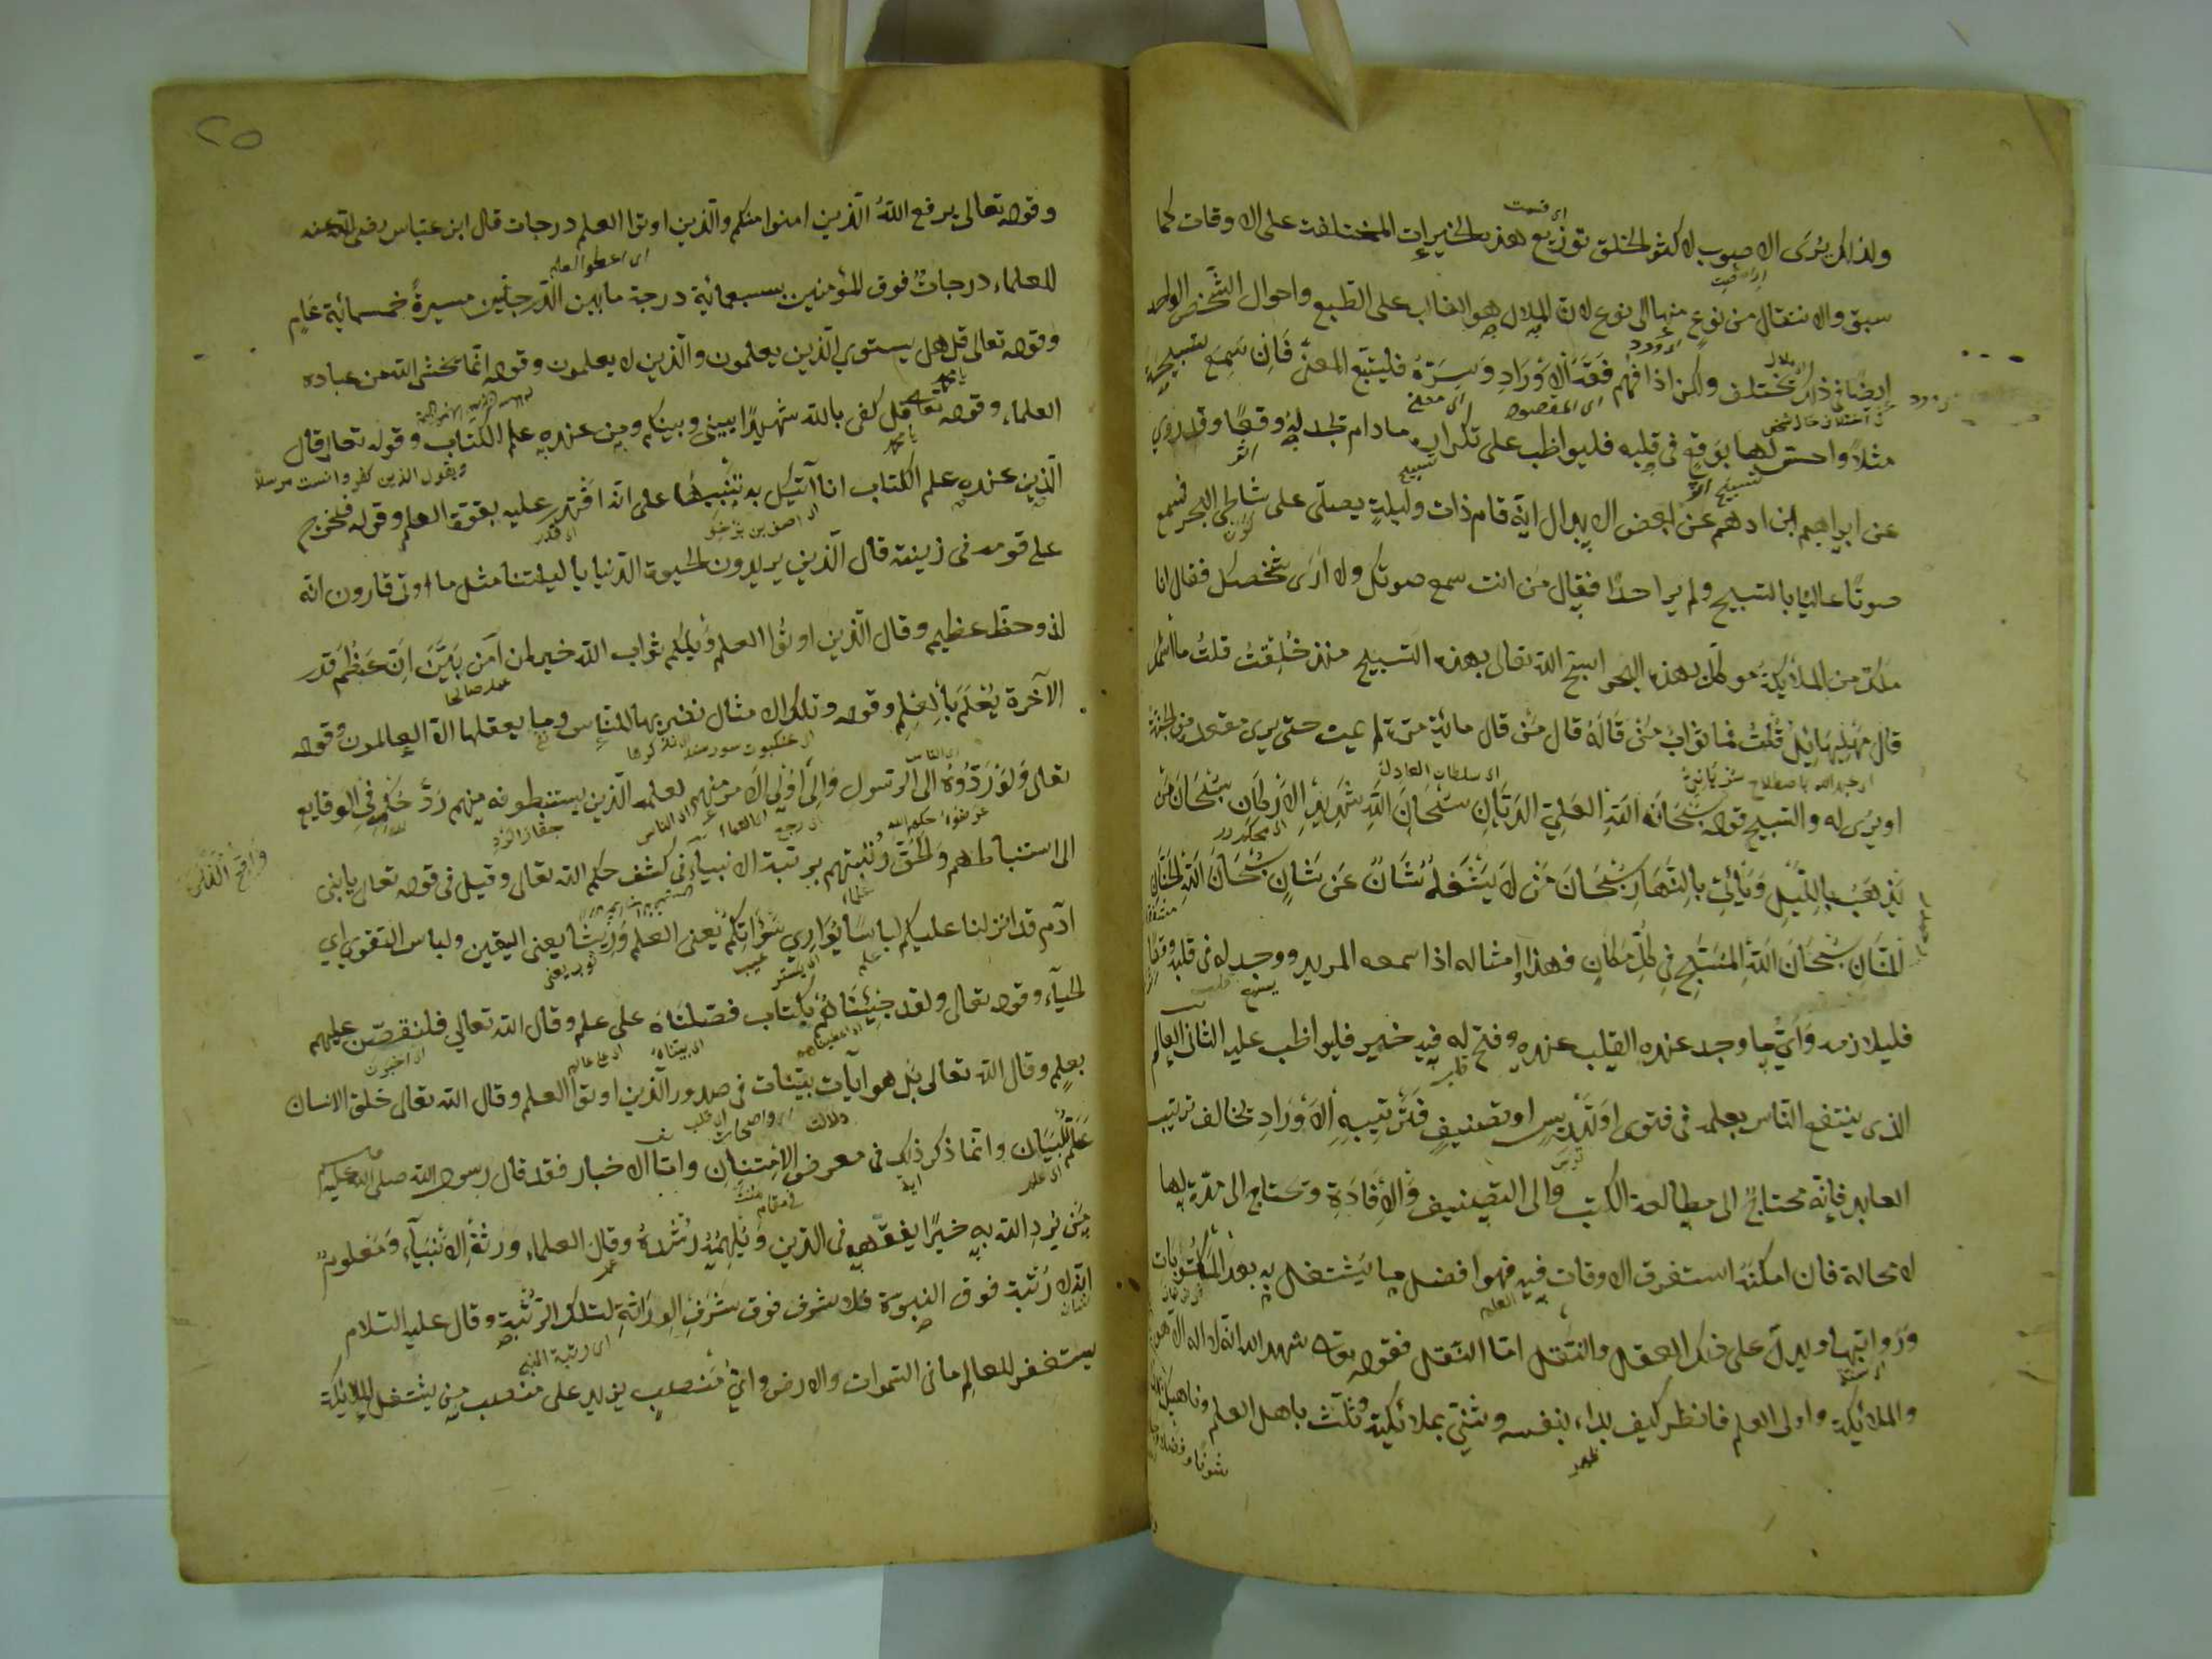 ولذلك يرى الاصوب لاكثر الخلق توزيع هذه الخيرات المختلفة على الاوقات كما
سبق والانتقال من نوع منها الى نوع لان الملال هو الغالب على الطبع واحوال الشخص الواحد
ايضا في ذلك تختلف ولكن اذا فهم فقه الاوراد وسره فليتبع المعنى فان سمع تسبيحة
مثلا واحس لها بوقع في قلبه فليواظب على تكراره مادام يجد له وقعا وقد روي
عن ابراهيم ابن ادهم عن بعض الابدال انه قام ذات ليلة يصلى على شاطئ البحر فسمع
صوتا عاليا بالتسبيح ولم ير احدا فقال من انت سمع صوتك ولا ارى شخصك فقال انا
ملك من الملائكة موكل بهذه البحر اسبح الله تعالى بهذه التسبيح منذ خلقت قلت ما اسمك
قال مهلهيائيل قلت فما ثواب من قاله قال من قال مائة مرة لم يمت حتى يرى مقعده من الجنة
او يرى له والتسبيح قوله سبحانه الله العلي الديان سبحان الله شديد الاركان سبحان من
يذهب بالليل ويأتي بالنهار سبحان من لا يشغله شان عن شان سبحان الله الحنان
المنان سبحان الله المسبح في كل مكان فهذا وامثاله اذا سمعه المريد ووجد له في قلبه وقعا
فليلازمه واي ما وجد عنده القلب عنده وفتح له فيه خير فليواظب عليه الثاني العالم
الذى ينتفع الناس بعلمه في فتوى او تدريس او تصنيف فترتيبه الاوراد تخالف ترتيب
العابد فانه محتاج الى مطالعة الكتب والى التصنيف والافادة وتحتاج الى مدة لها
لا محالة فان امكنه استغرق الاوقات فيه فهو افضل ما يشتغل به بعد المكتوبات
ورواتبها ويدل على ذلك العقل والنقل اما النقل فقوله تعالى شهد الله انه لا اله الا هو
والملائكة واولى العلم فانظر كيف بداء بنفسه وثنى بملائكته وثلث باهل العلم وناهيك
شرفا وفضلا
٢٥
وقوله تعالى يرفع الله الذين امنوا منكم والذين اوتوا العلم درجات قال ابن عباس رضى الله عنه
للعلماء درجات فوق المؤمنين بسبعمائة درجة ما بين الدرجتين مسيرة خمسمائة عام
وقوله تعالى قل هل يستوي الذين يعلمون والذين لا يعلمون وقوله انما يخشى الله من عباده
العلماء وقوله تعالى قل كفى بالله شهيدا بيني وبينكم ومن عنده علم الكتاب وقوله تعالى قال
ويقول الذين كفروا لست مرسلا
الذين عنده علم الكتاب انا آتيك به تنبيها على انه اقتدر عليه بقوة العلم وقوله فخرج
على قومه في زينته قال الذين يريدون الحيوة الدنيا يا ليتنا مثل ما اوتى قارون انه
لذو حظ عظيم وقال الذين اوتوا العلم ويلكم ثواب الله خير لمن آمن بين ان عظم قدر
الآخرة يعلم بالعلم وقوله وتلك الامثال نضربها للناس وما يعقلها الا العالمون وقوله
تعالى ولو ردوه الى الرسول والى اولى الامر منهم لعلمه الذين يستنبطونه منهم رد حكمه في الوقايع
الى استنباطهم والحق رتبتهم برتبة الانبياء في كشف حكم الله تعالى وقيل في قوله تعالى يا بنى
آدم قد انزلنا عليكم لباسا يواري سوآتكم يعنى العلم وريشا يعنى اليقين ولباس التقوى اي
الحياء وقوله تعالى ولقد جئناهم بكتاب فصلناه على علم وقال الله تعالى فلنقصن عليهم
بعلم وقال الله تعالى بل هو آيات بينات في صدور الذين اوتوا العلم وقال الله تعالى خلق الانسان
علمه البيان وانما ذكر ذلك في معرض الامتنان واما الاخبار فقد قال رسول الله صلى الله عليه
من يرد الله به خيرا يفقهه في الدين ويلهمه رشده وقال العلماء ورثة الانبياء ومعلوم
انه لا رتبة فوق النبوة فلا شرف فوق شرف الوراثة لتلك الرتبة وقال عليه السلام
يستغفر للعالم ما في السموات والارض واي منصب يزيد على منصب من يشتغل الملائكة